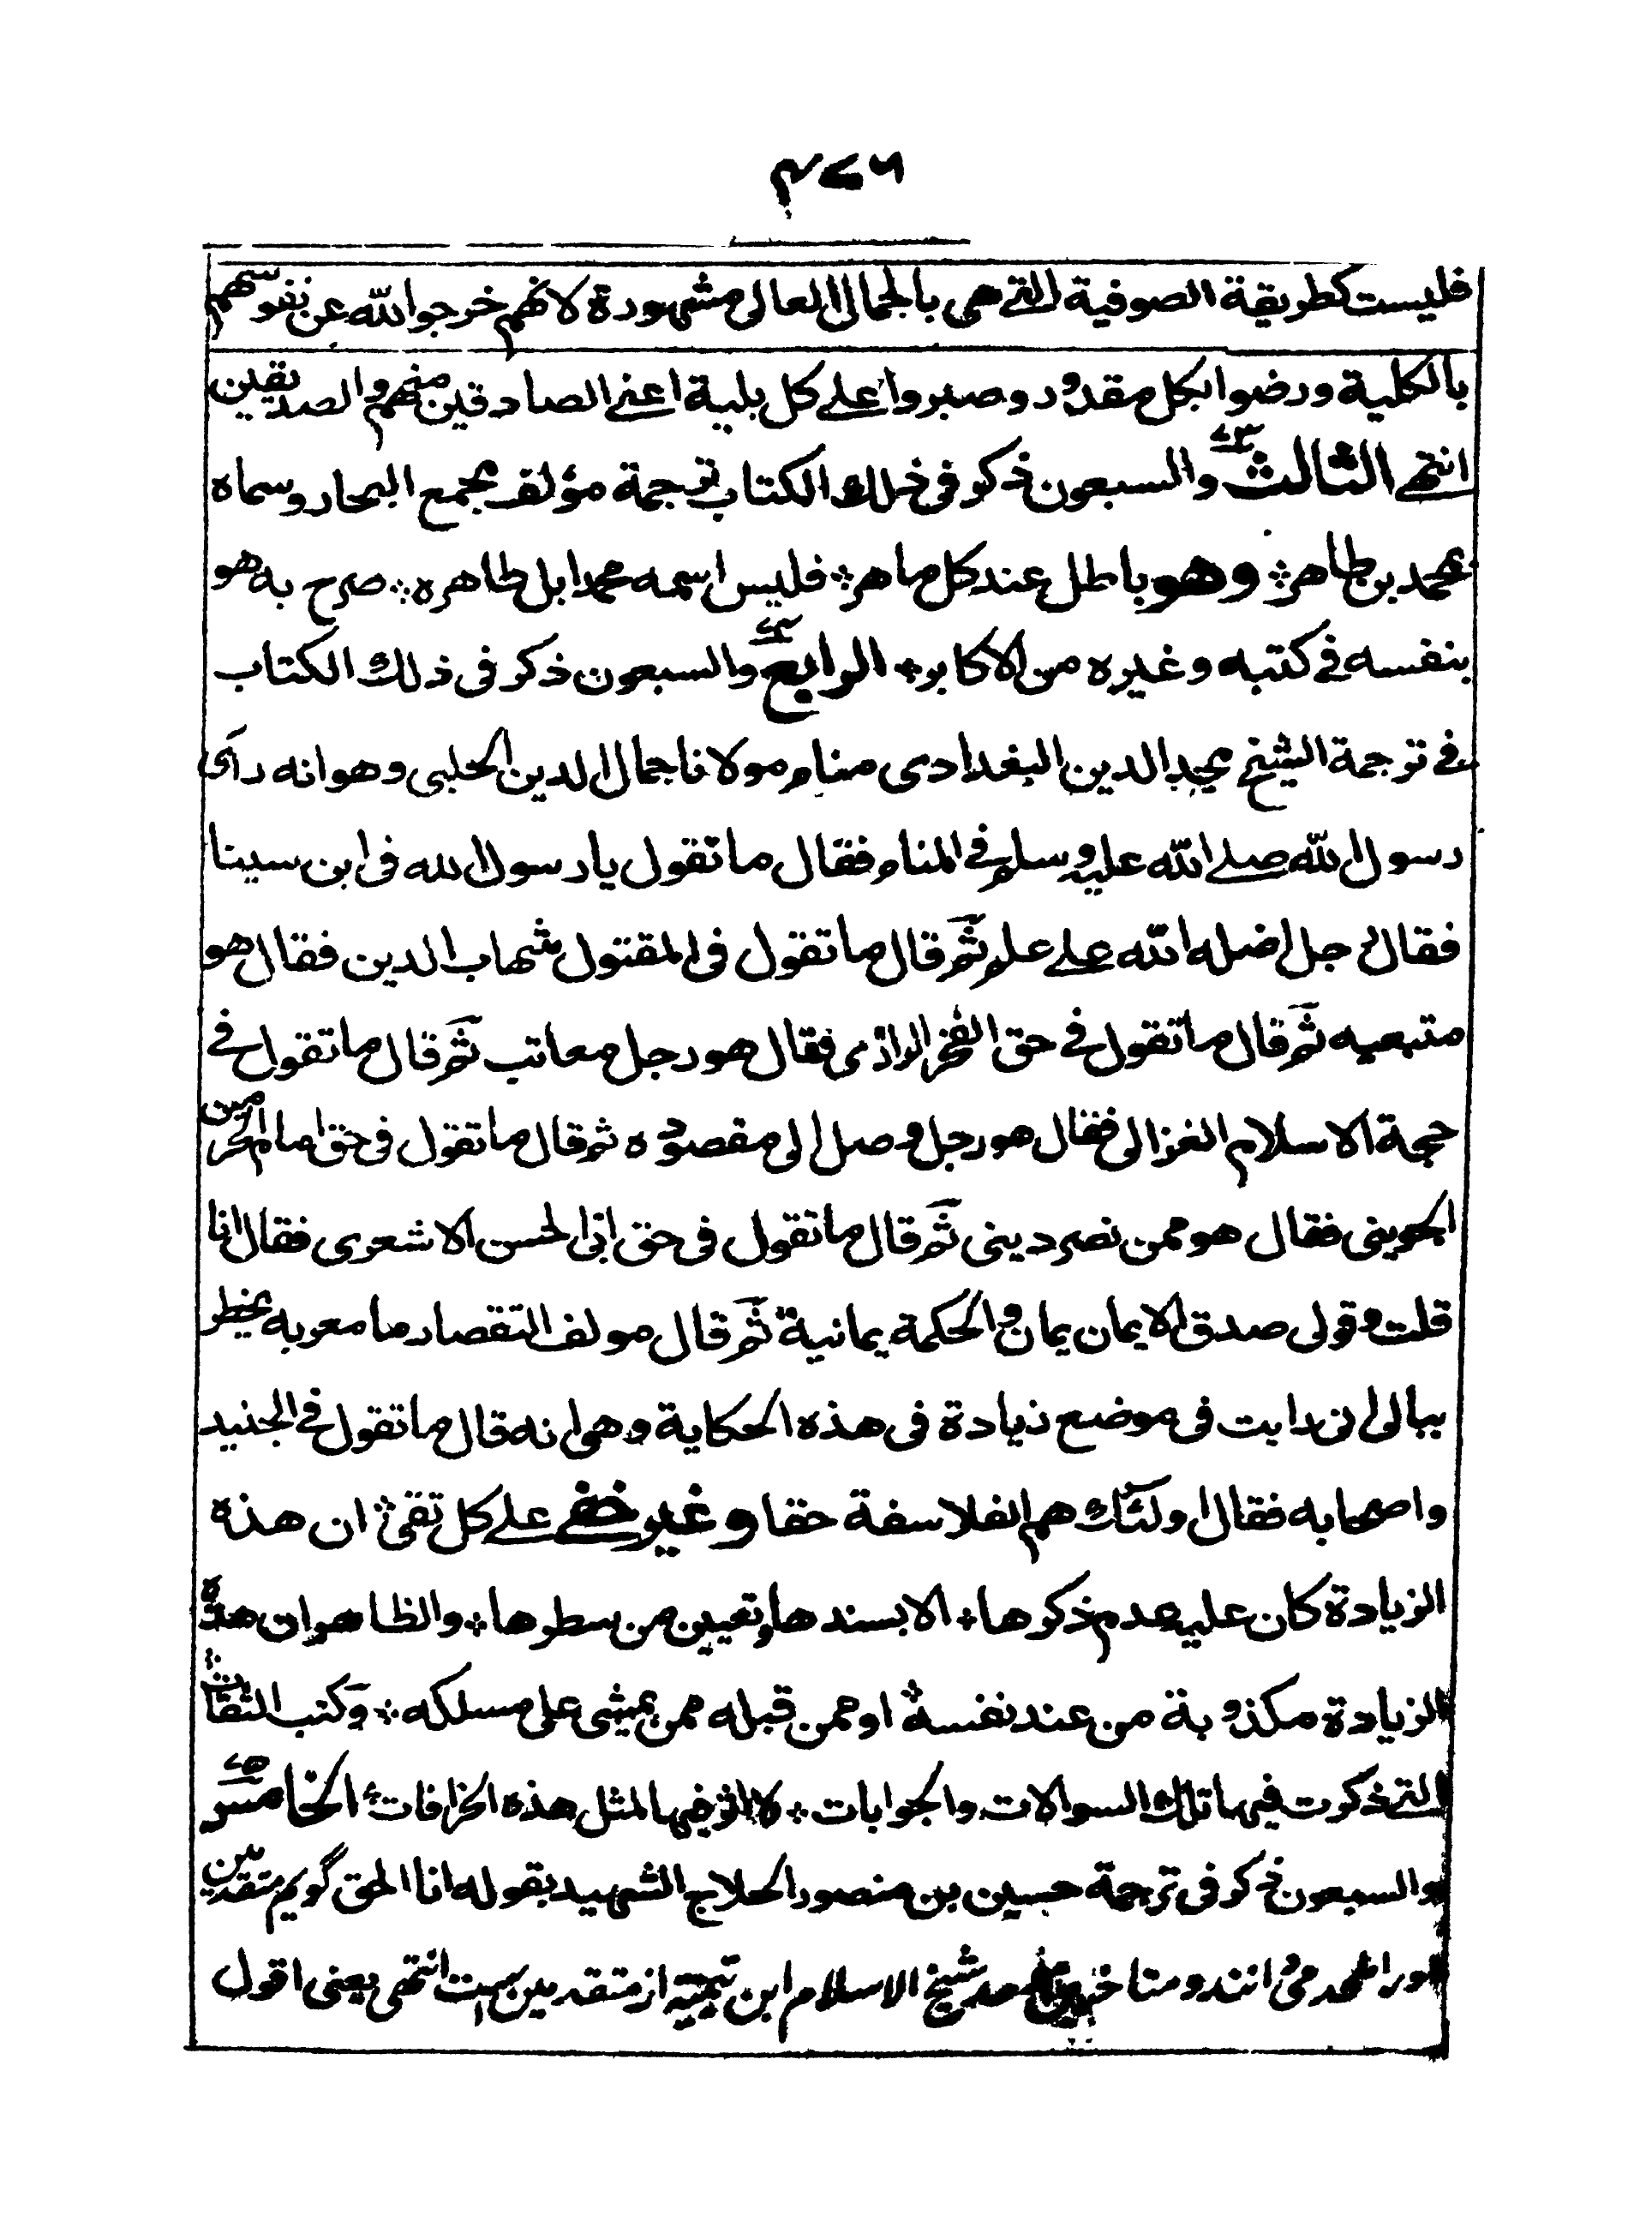 ۴۷۶
فليست كطريقة الصوفية التے هى بالجمال العالى مشهورة لانهم خرجوا لله عن نفوسهم
بالكلية ورضوا بكل مقدور وصبروا علے كل بلية اعنے الصادقين منهم والصديقين
انتهے الثالث والسبعون ذكر فى ذلك الكتاب ترجمة مؤلف مجمع البحار وسماه
محمد بن طاهر؞ وهو باطل عند كل ماهر؞ فليس اسمه محمدا بل طاهره؞ صرح به هو
بنفسه فے كتبه وغيره من الاكابر؞ الرابع والسبعون ذكر فى ذلك الكتاب
فے ترجمة الشيخ مجد الدين البغدادى منام مولانا جمال الدين الحلبى وهو انه رأى
رسول الله صلے الله عليه وسلم فے المنام فقال ما تقول يا رسول الله فى ابن سينا
فقال رجل اضله الله علے علم ثم قال ما تقول فى المقتول شهاب الدين فقال هو
متبعيه ثم قال ما تقول فے حق الفخر الرازى فقال هو رجل معاتب ثم قال ما تقول فے
حجة الاسلام الغزالى فقال هو رجل وصل الى مقصوده ثم قال ما تقول فى حق امام الحرمين
الجوينى فقال هو ممن نصر دينى ثم قال ما تقول فى حق ابى الحسن الاشعرى فقال انا
قلت وقولى صدق الايمان يمان والحكمة يمانية ثم قال مولف التقصار ما معربه يخطر
ببالى انى رايت فى موضع زيادة فى هذه الحكاية وهى انه قال ما تقول فے الجنيد
واصحابه فقال اولئك هم الفلاسفة حقا وغير خفے علے كل تقى؞ ان هذه
الزيادة كان عليه عدم ذكرها؞ الا بسندها وتعيين من سطرها؞ والظاهر ان هذه
الزيادة مكذوبة من عند نفسه؞ او ممن قبله ممن يمشى على مسلكه؞ وكتب الثقات؞
التے ذكرت فيها تلك السوالات والجوابات؞ لا اثر فيها لمثل هذه الخرافات؞ الخامس
والسبعون ذكر فى ترجمة حسين بن منصور الحلاج الشهيد بقوله انا الحق گويم متقدمين
اورا ملحد مى دانند و متاخرين شيخ الاسلام ابن تيمية از متقدمين ست انتهى يعنى اقول